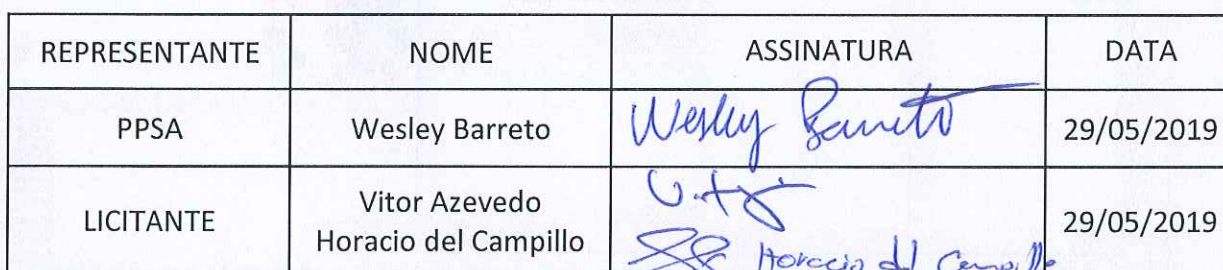 REPRESENTANTE NOME ASSINATURA DATA
PPSA Wesley Barreto Wesley Barreto 29/05/2019
LICITANTE Vitor Azevedo
Horacio del Campillo 29/05/2019
Horacio del Campillo